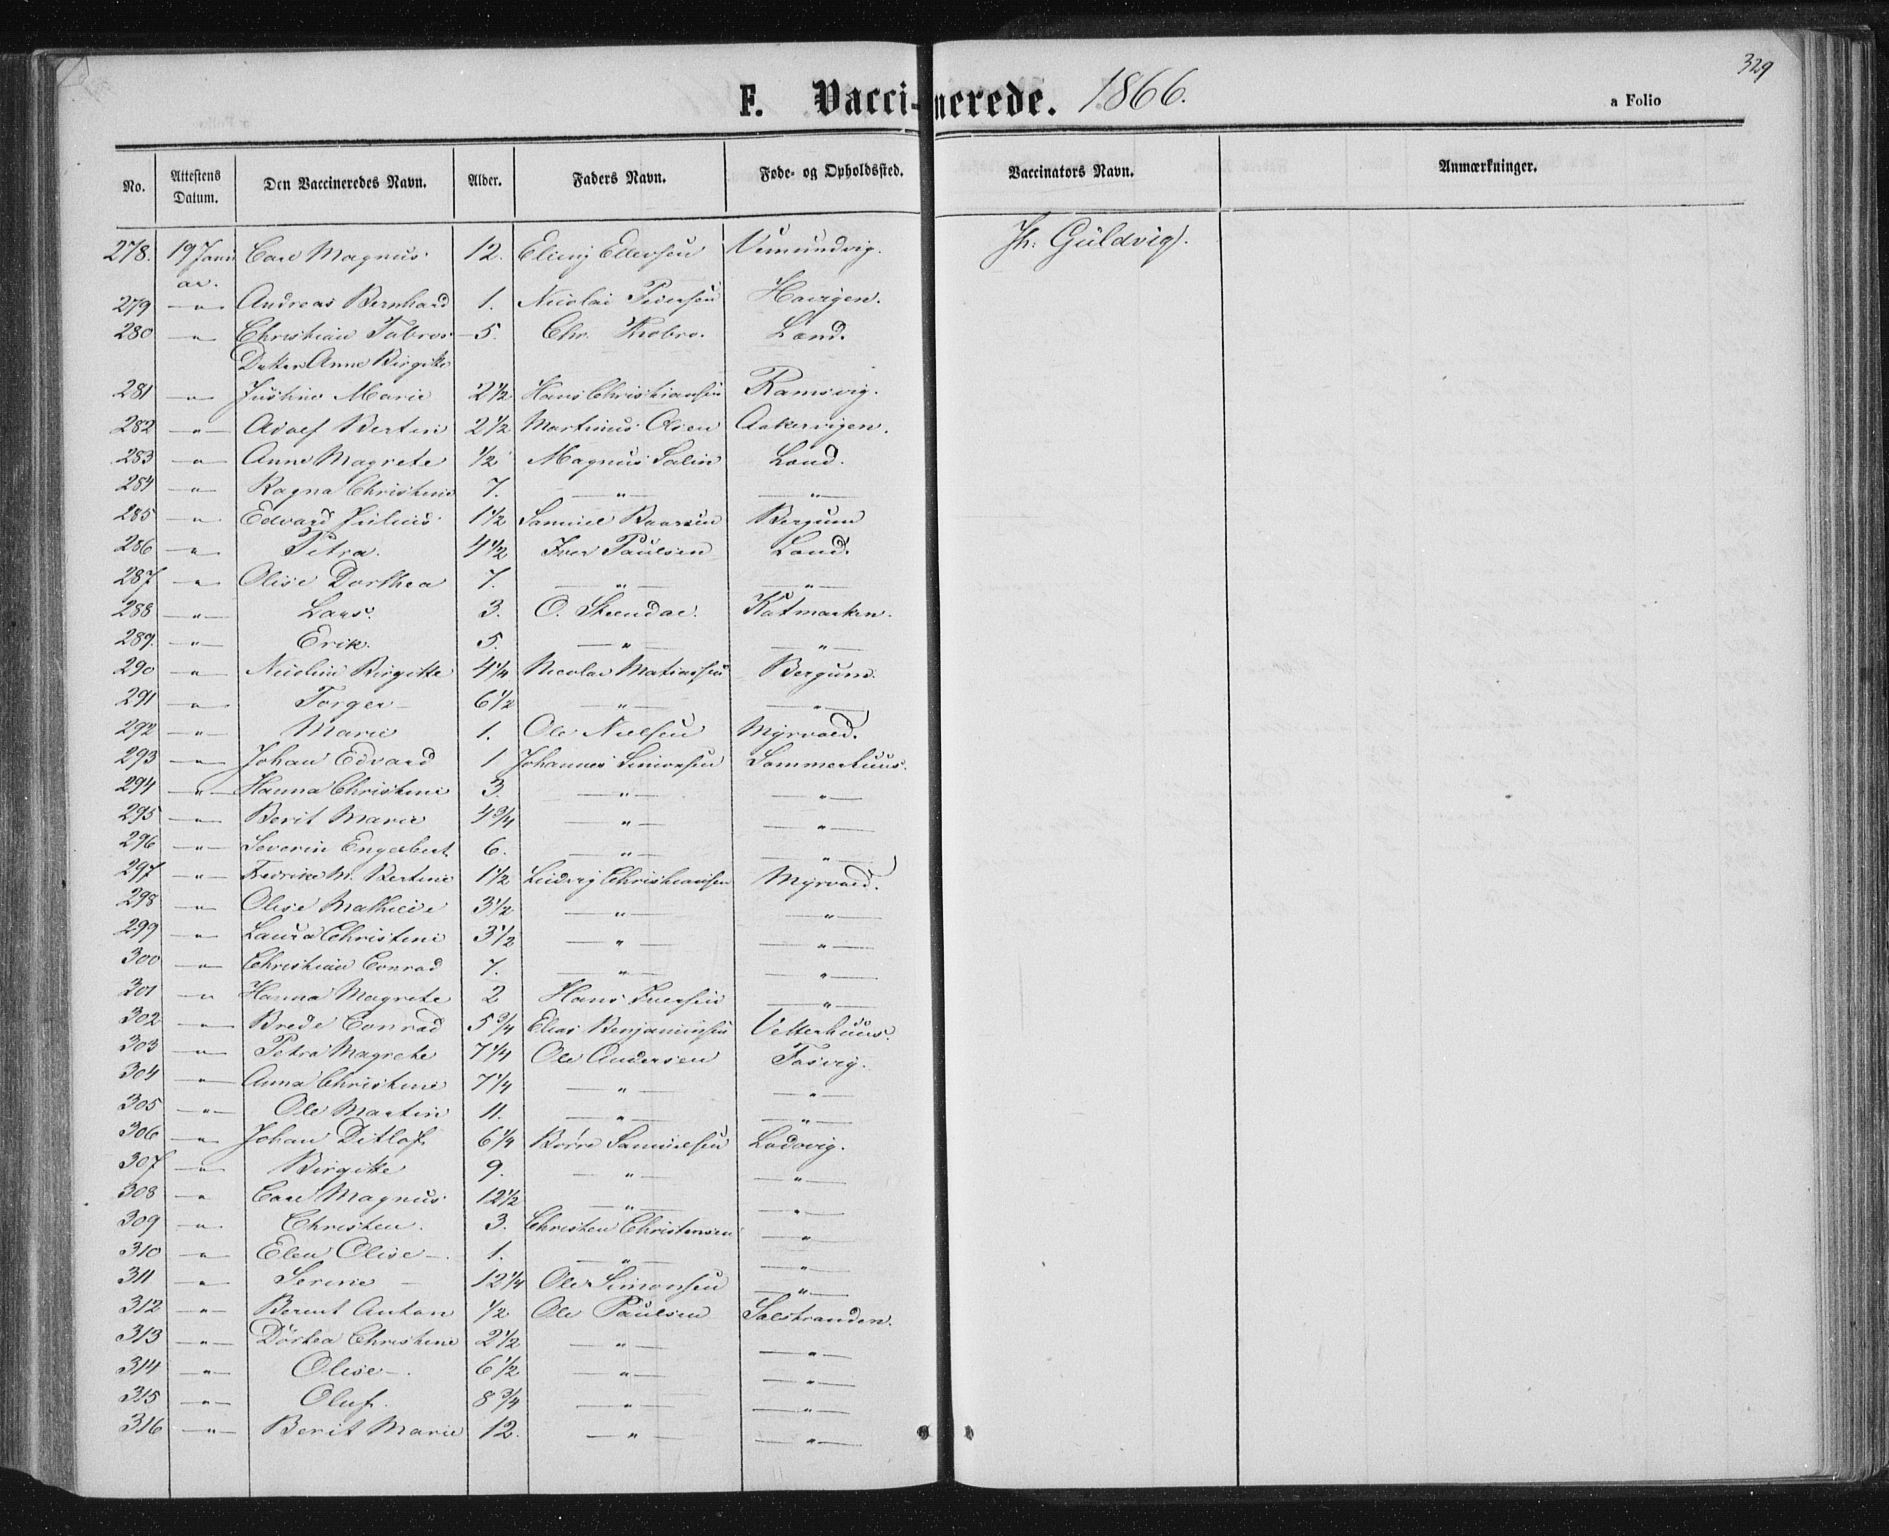 329
F. Vacci-nerede. 1866.
a Folio
No. Attestens Datum. Den Vaccineredes Navn. Alder. Faders Navn. Føde- og Opholdssted. Vaccinators Navn. Anmærkninger.
278. 19 Janu ar. Carl Magnus 12. Elling Ellevsen Vemundvig. Jh. Güldvig.
279 -"- Andreas Bernhard 1. Nicolai Pedersen Havigen.
280 -"- Christian Tabros 5. Chr. Krobro. Lænd.
Anne Birgitte
281 -"- Justine Marie 2 1/2 Hans Christiansen Ramsvig.
282 -"- Adolf Bertin 2 1/2 Martinus Olsen Aakervigen.
283 -"- Anne Magrete 1/2 Magnus Salin Lænd.
284 -"- Ragna Christine 7. -"- -"-
285 -"- Edvard Julius 1 1/2 Samuel Baarsen Bergum
286 -"- Petra. 4 1/2 Iver Paulsen Lænd.
287 -"- Olise Dorthea 7. -"- -"-
288 -"- Lars. 3. O. Skrendal. Katmarken.
289. -"- Erik. 5. -"- -"-
290 -"- Nicoline Birgitte 4 1/4 Nicolai Matiassen Bergum.
291 -"- Torger 6 1/2 -"- -"-
292 -"- Marie 1. Ole Nielsen Myrvold.
293 -"- Johan Edvard 1 Johannes Simonsen Sommerhuus.
294 -"- Hanna Christine 3. -"- -"-
295 -"- Berit Marie 4 3/4 -"- -"-
296 -"- Severin Engelbert 6. -"- -"-
297 -"- Fredrike M. Bertine 1 1/2 Ludvig Christiansen Myrvold.
298 -"- Olise Mathilde 3 1/2 -"- -"-
299 -"- Laura Christine 3 1/2 -"- -"-
300 -"- Christian Conrad 7. -"- -"-
301 -"- Hanna Magrete 2 Hans Iversen -"-
302 -"- Brede Conrad 5 3/4 Elias Benjaminsen Velterhuus.
303 -"- Petra Magrete 7 1/4 Ole Andersen Fosvig.
304 -"- Anna Christine 7 1/4 -"- -"-
305 -"- Ole Martin 11. -"- -"-
306 -"- Johan Ditlof 6 1/4 Børre Samuelsen Lodvig.
307 -"- Birgitte 9. -"- -"-
308 -"- Carl Magnus 12 1/2 -"- -"-
309 -"- Christen. 3. Christen Christensen -"-
310 -"- Elen Olise 1. -"- -"-
311 -"- Serine 12 1/4 Ole Simonsen -"-
312 -"- Berent Anton 1/2 Ole Paulsen Salstranden.
313 -"- Dortea Christine 2 1/2 -"- -"-
314 -"- Olise 6 1/2 -"- -"-
315 -"- Oluf. 8 3/4 -"- -"-
316 -"- Berit Marie 12. -"- -"-